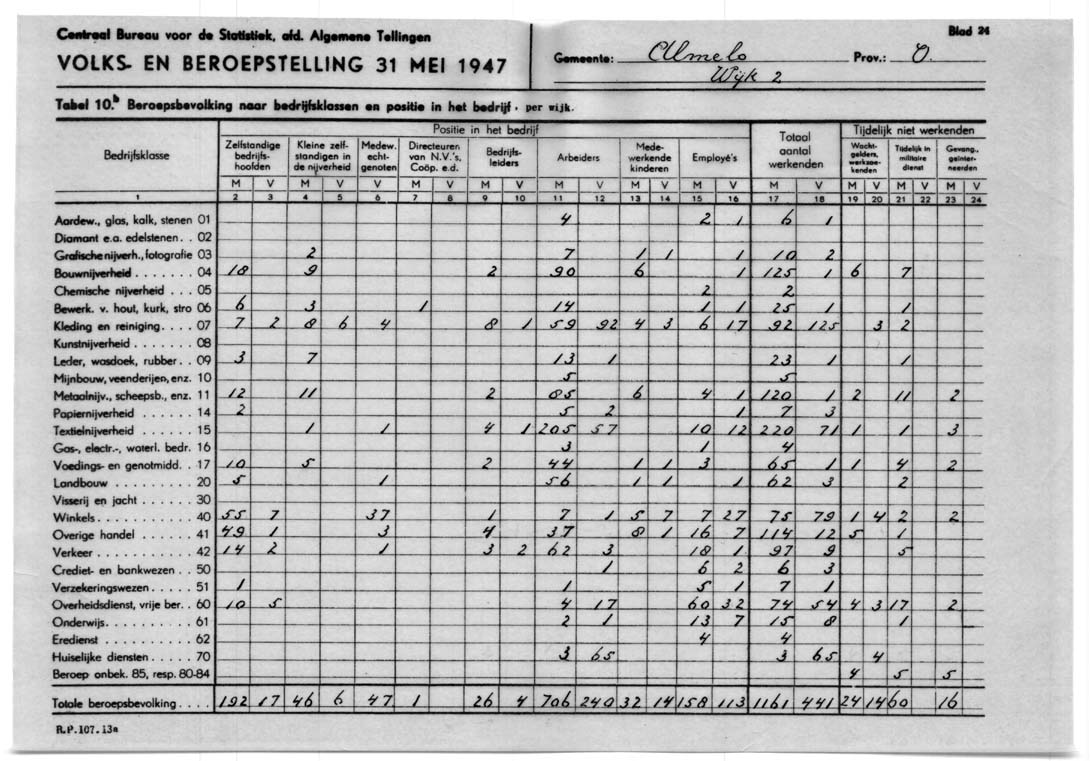 Centraal Bureau voor de Statistiek, afd. Algemene Tellingen
Blad 24
VOLKS- EN BEROEPSTELLING 31 MEI 1947
Gemeente: Almelo Prov.: O.
Wijk 2
Tabel 10.b Beroepsbevolking naar bedrijfsklassen en positie in het bedrijf, per wijk.
Bedrijfsklasse
Positie in het bedrijf
Totaal aantal werkenden
Tijdelijk niet werkenden
Zelfstandige bedrijfshoofden
Kleine zelfstandigen in de nijverheid
Medew. echtgenoten
Directeuren van N.V.'s, Coöp. e.d.
Bedrijfsleiders
Arbeiders
Medewerkende kinderen
Employé's
Wachtgelders, werkzoekenden
Tijdelijk in militaire dienst
Gevang., geïnterneerden
M V M V V M V M V M V M V M V M V M V M V M V
1 2 3 4 5 6 7 8 9 10 11 12 13 14 15 16 17 18 19 20 21 22 23 24
Aardew., glas, kalk, stenen 01 4 2 1 6 1
Diamant e.a. edelstenen . . 02
Grafische nijverh., fotografie 03 2 7 1 1 1 10 2
Bouwnijverheid . . . . . . . 04 18 9 2 90 6 1 125 1 6 7
Chemische nijverheid . . . 05 2 2
Bewerk. v. hout, kurk, stro 06 6 3 1 14 1 1 25 1 1
Kleding en reiniging. . . . 07 7 2 8 6 4 8 1 59 92 4 3 6 17 92 125 3 2
Kunstnijverheid . . . . . . 08
Leder, wasdoek, rubber . . 09 3 7 13 1 23 1 1
Mijnbouw, veenderijen, enz. 10 5 5
Metaalnijv., scheepsb., enz. 11 12 11 2 85 6 4 1 120 1 2 11 2
Papiernijverheid . . . . . . 14 2 5 2 1 7 3
Textielnijverheid . . . . . . 15 1 1 4 1 205 57 10 12 220 71 1 1 3
Gas-, electr.-, waterl. bedr. 16 3 1 4
Voedings- en genotmidd. . 17 10 5 2 44 1 1 3 65 1 1 4 2
Landbouw . . . . . . . . . 20 5 1 56 1 1 1 62 3 2
Visserij en jacht . . . . . . 30
Winkels . . . . . . . . . . . 40 55 7 37 1 7 1 5 7 7 27 75 79 1 4 2 2
Overige handel . . . . . . . 41 49 1 3 4 37 8 1 16 7 114 12 5 1
Verkeer . . . . . . . . . . . 42 14 2 1 3 2 62 3 18 1 97 9 5
Crediet- en bankwezen . . 50 1 6 2 6 3
Verzekeringswezen . . . . . 51 1 1 5 1 7 1
Overheidsdienst, vrije ber. . 60 10 5 4 17 60 32 74 54 4 3 17 2
Onderwijs. . . . . . . . . . 61 2 1 13 7 15 8 1
Eredienst . . . . . . . . . . 62 4 4
Huiselijke diensten . . . . . 70 3 65 3 65 4
Beroep onbek. 85, resp. 80-84 4 5 5
Totale beroepsbevolking . . . . 192 17 46 6 47 1 26 4 706 240 32 14 158 113 1161 441 24 14 60 16
R.P. 107.13a